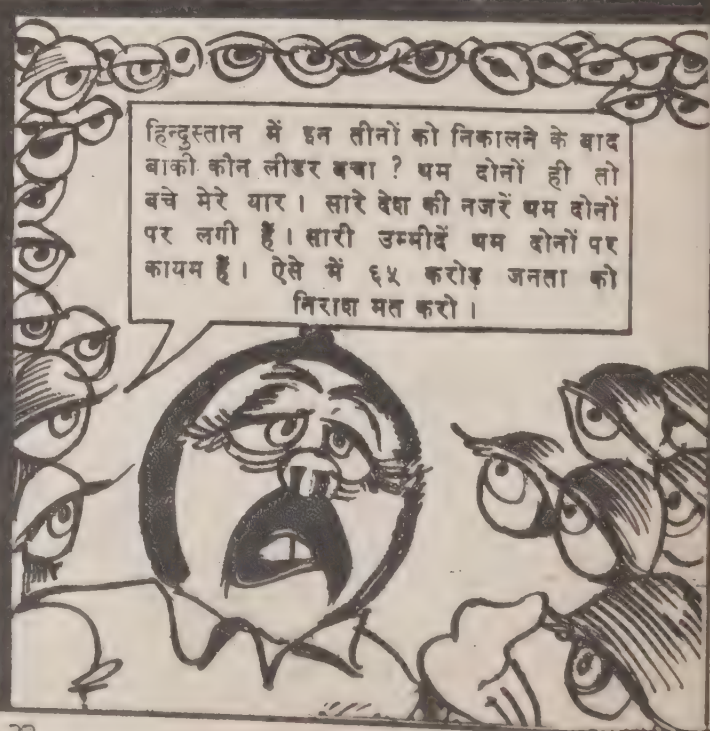 हिन्दुस्तान में इन तीनों को निकालने के बाद
बाकी कौन लीडर बचा ? थम दोनों ही तो
बचे मेरे यार । सारे देश की नजरें थम दोनों
पर लगी हैं । सारी उम्मीदें थम दोनों पर
कायम हैं । ऐसे में ६५ करोड़ जनता को
निराश मत करो ।